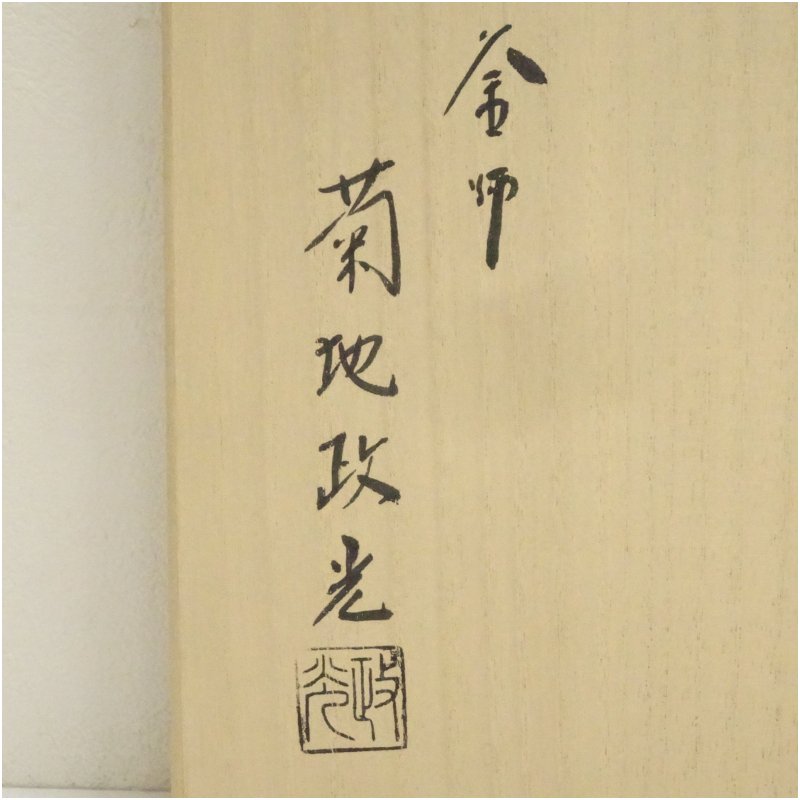 釜師
菊地政光
政光